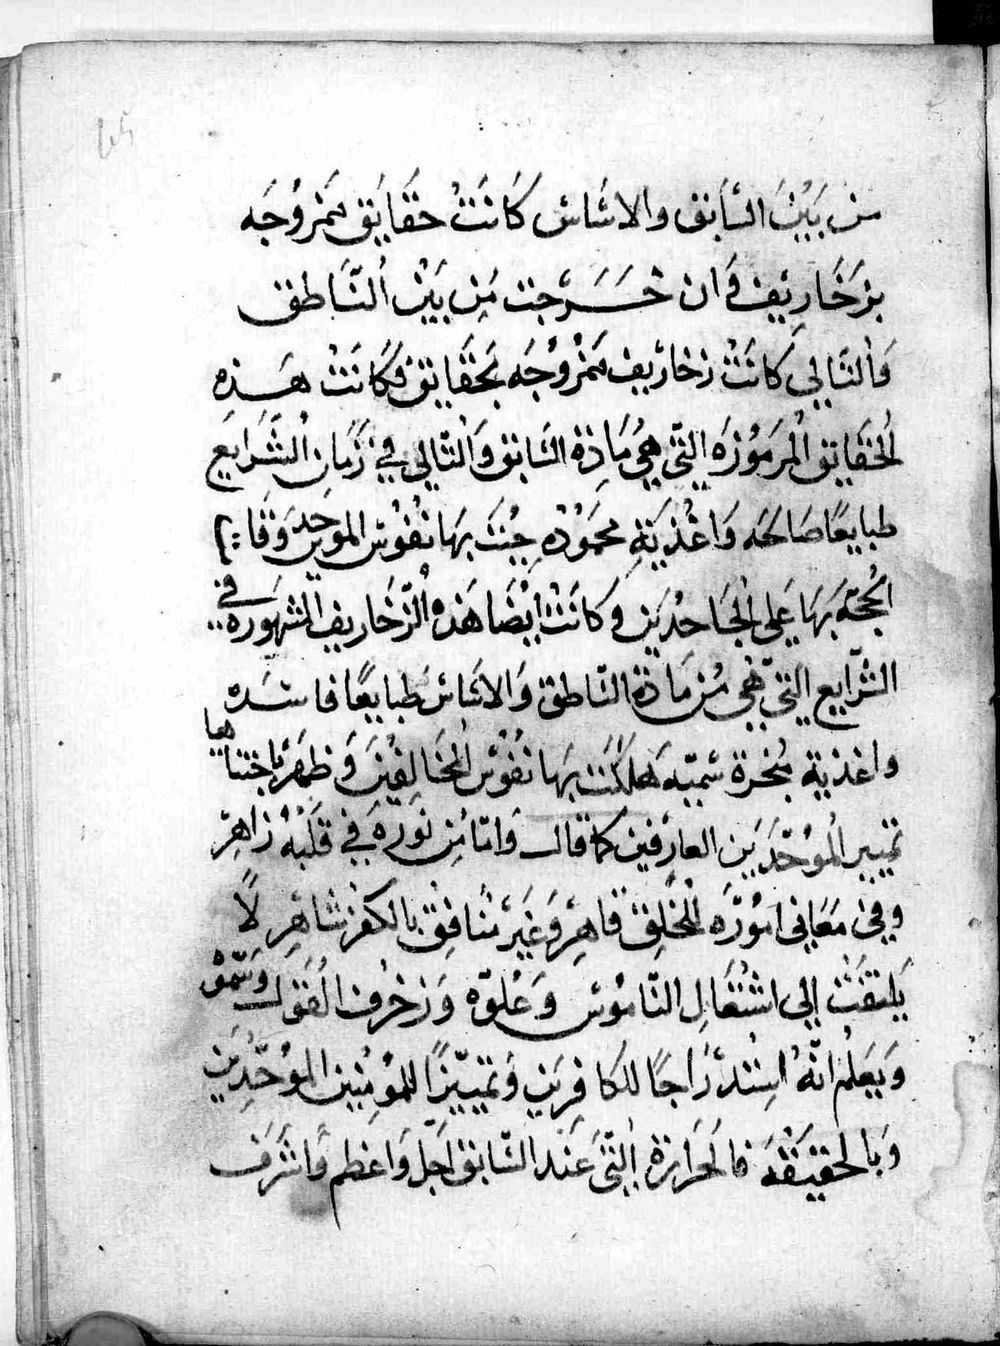 من بين السابق والاساس كانت حقايق ممزوجه
بزخاريف وان خرجت من بين الناطق
والتالي كانت زخاريف ممزوجه بحقايق فكانت هذه
الحقايق المرموزه التي هي مادة السابق والتالي في زمان الشرايع
طبايعًا صالحه واغذية محموده حيت بها نفوس الموحدين وقامت
الحجة بها على الجاحدين وكانت ايضا هذه الزخاريف المشهورة في
الشرايع التي هي من مادة الناطق والاساس طبايعًا فاسده
واغذية سميه هلكت بها نفوس المخالفين وظهر باجتنابها
تمييز الموحدين العارفين كما قال واما من نوره في قلبه زاهر
وفي معاني اموره للخلق قاهر وغير منافق بالكفر شاهر لا
يلتفت الي اشتغال الناموس وعلوه وزخرف القول وسموه
ويعلم انه استدراجا للكافرين وتمييزًا للمؤمنين الموحدين
وبالحقيقه فالحرارة التي عند السابق اجل واعظم واشرف